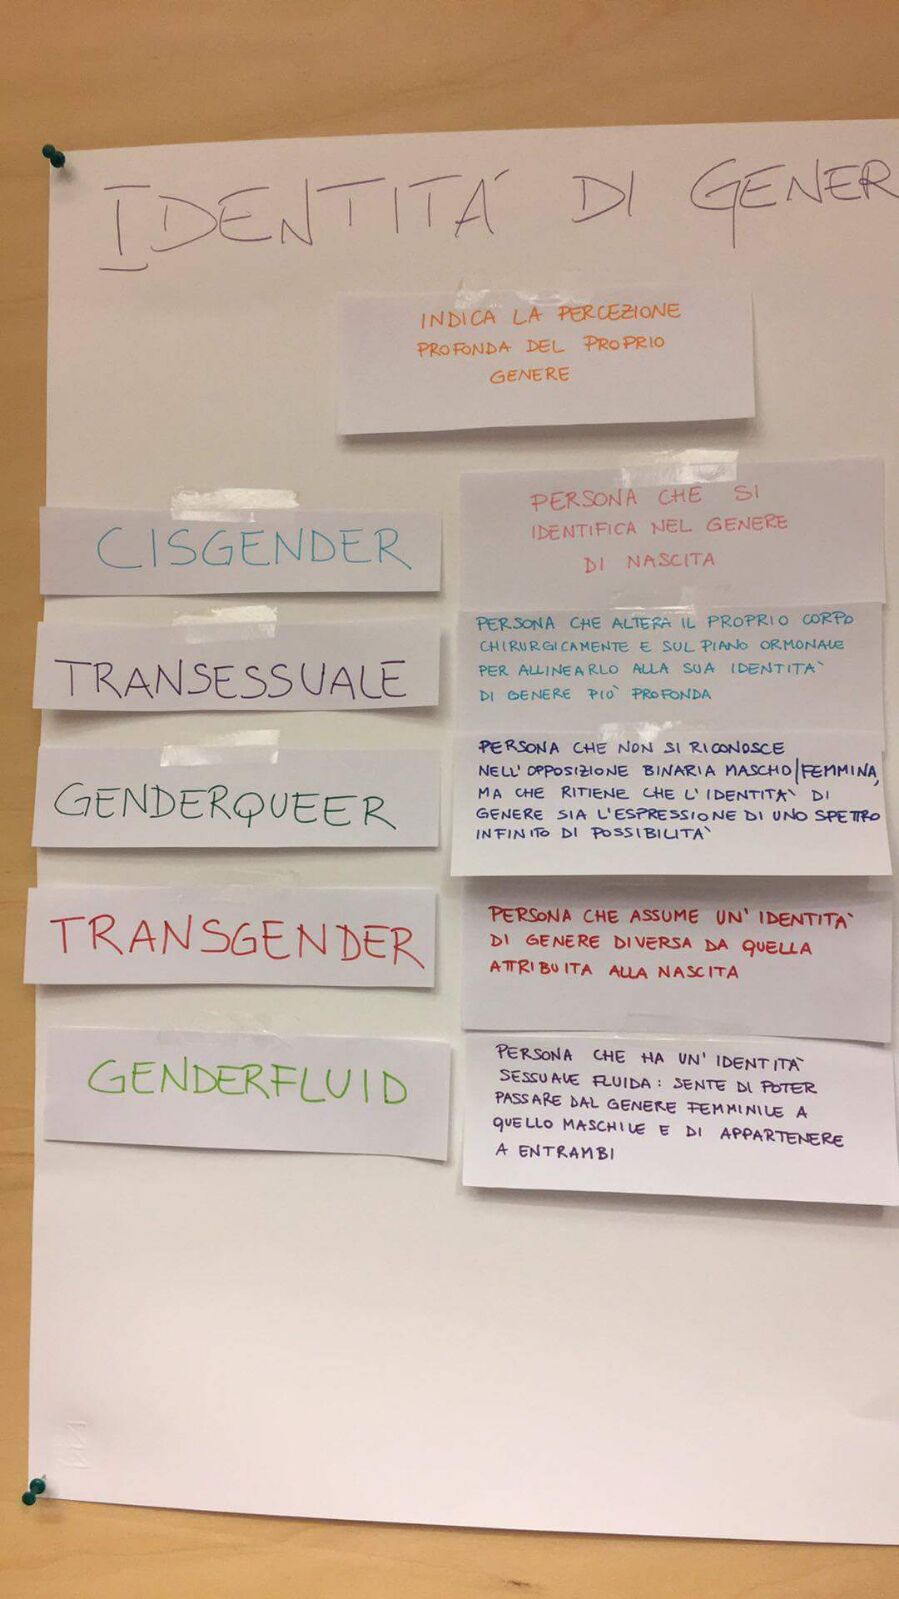 IDENTITÁ DI GENER
INDICA LA PERCEZIONE
PROFONDA DEL PROPRIO
GENERE
CISGENDER
PERSONA CHE SI
IDENTIFICA NEL GENERE
DI NASCITA
TRANSESSUALE
PERSONA CHE ALTERA IL PROPRIO CORPO
CHIRURGICAMENTE E SUL PIANO ORMONALE
PER ALLINEARLO ALLA SUA IDENTITA`
DI GENERE PIU` PROFONDA
GENDERQUEER
PERSONA CHE NON SI RICONOSCE
NELL'OPPOSIZIONE BINARIA MASCHO/FEMMINA,
MA CHE RITIENE CHE L'IDENTITA` DI
GENERE SIA L'ESPRESSIONE DI UNO SPETTRO
INFINITO DI POSSIBILITA`
TRANSGENDER
PERSONA CHE ASSUME UN'IDENTITA`
DI GENERE DIVERSA DA QUELLA
ATTRIBUITA ALLA NASCITA
GENDERFLUID
PERSONA CHE HA UN'IDENTITA`
SESSUALE FLUIDA: SENTE DI POTER
PASSARE DAL GENERE FEMMINILE A
QUELLO MASCHILE E DI APPARTENERE
A ENTRAMBI